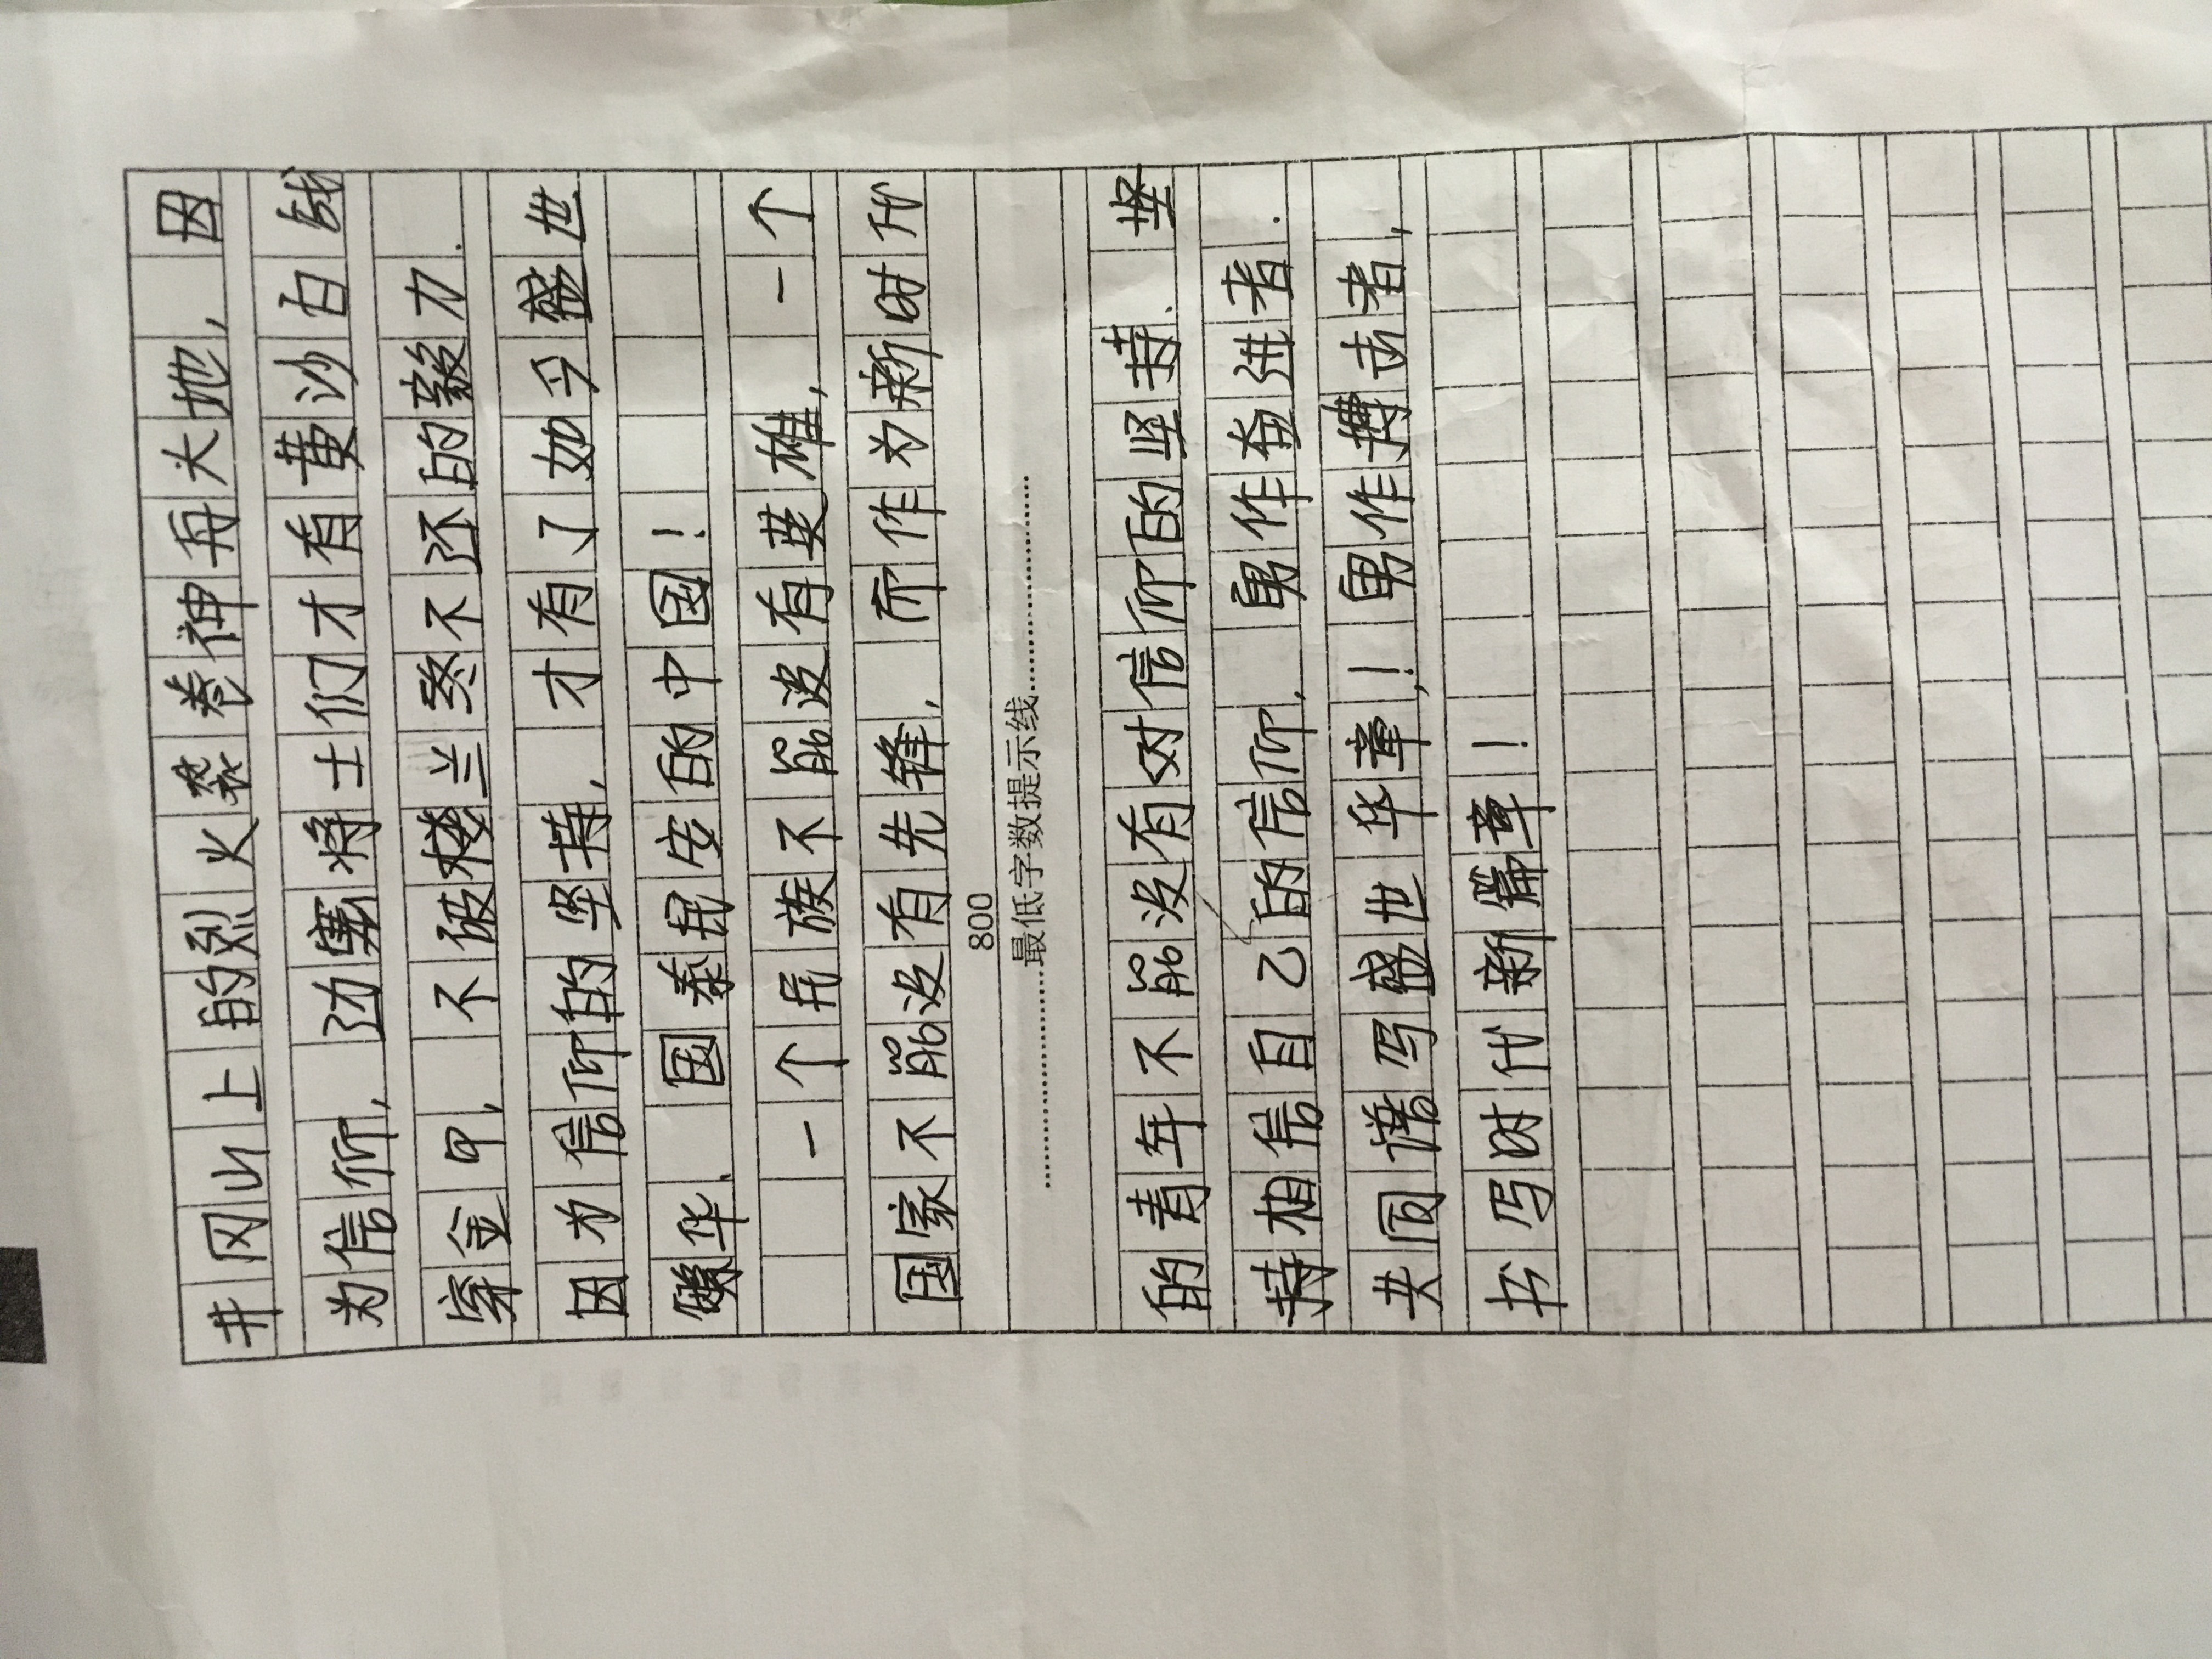 井冈山上的烈火袭卷神舟大地，因
为信仰，边塞将士们才有黄沙百战
穿金甲，不破楼兰终不还的毅力.
因为信仰的坚持，才有了如今盛世
华、国泰民安的中国！
一个民族不能没有英雄，一个
国家不能没有先锋，而作为新时代
800
最低字数提示线
的青年不能没有对信仰的坚持、坚
持相信自己的信仰，勇作奋进者.
共同谱写盛世华章！勇作搏击者，
书写时代新篇章！